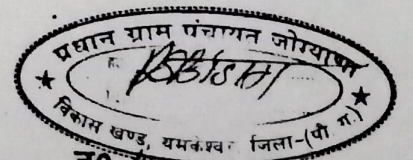 प्रधान ग्राम पंचायत जोग्याणा
विकास खण्ड, यमकेश्वर जिला-(पौ ग.)